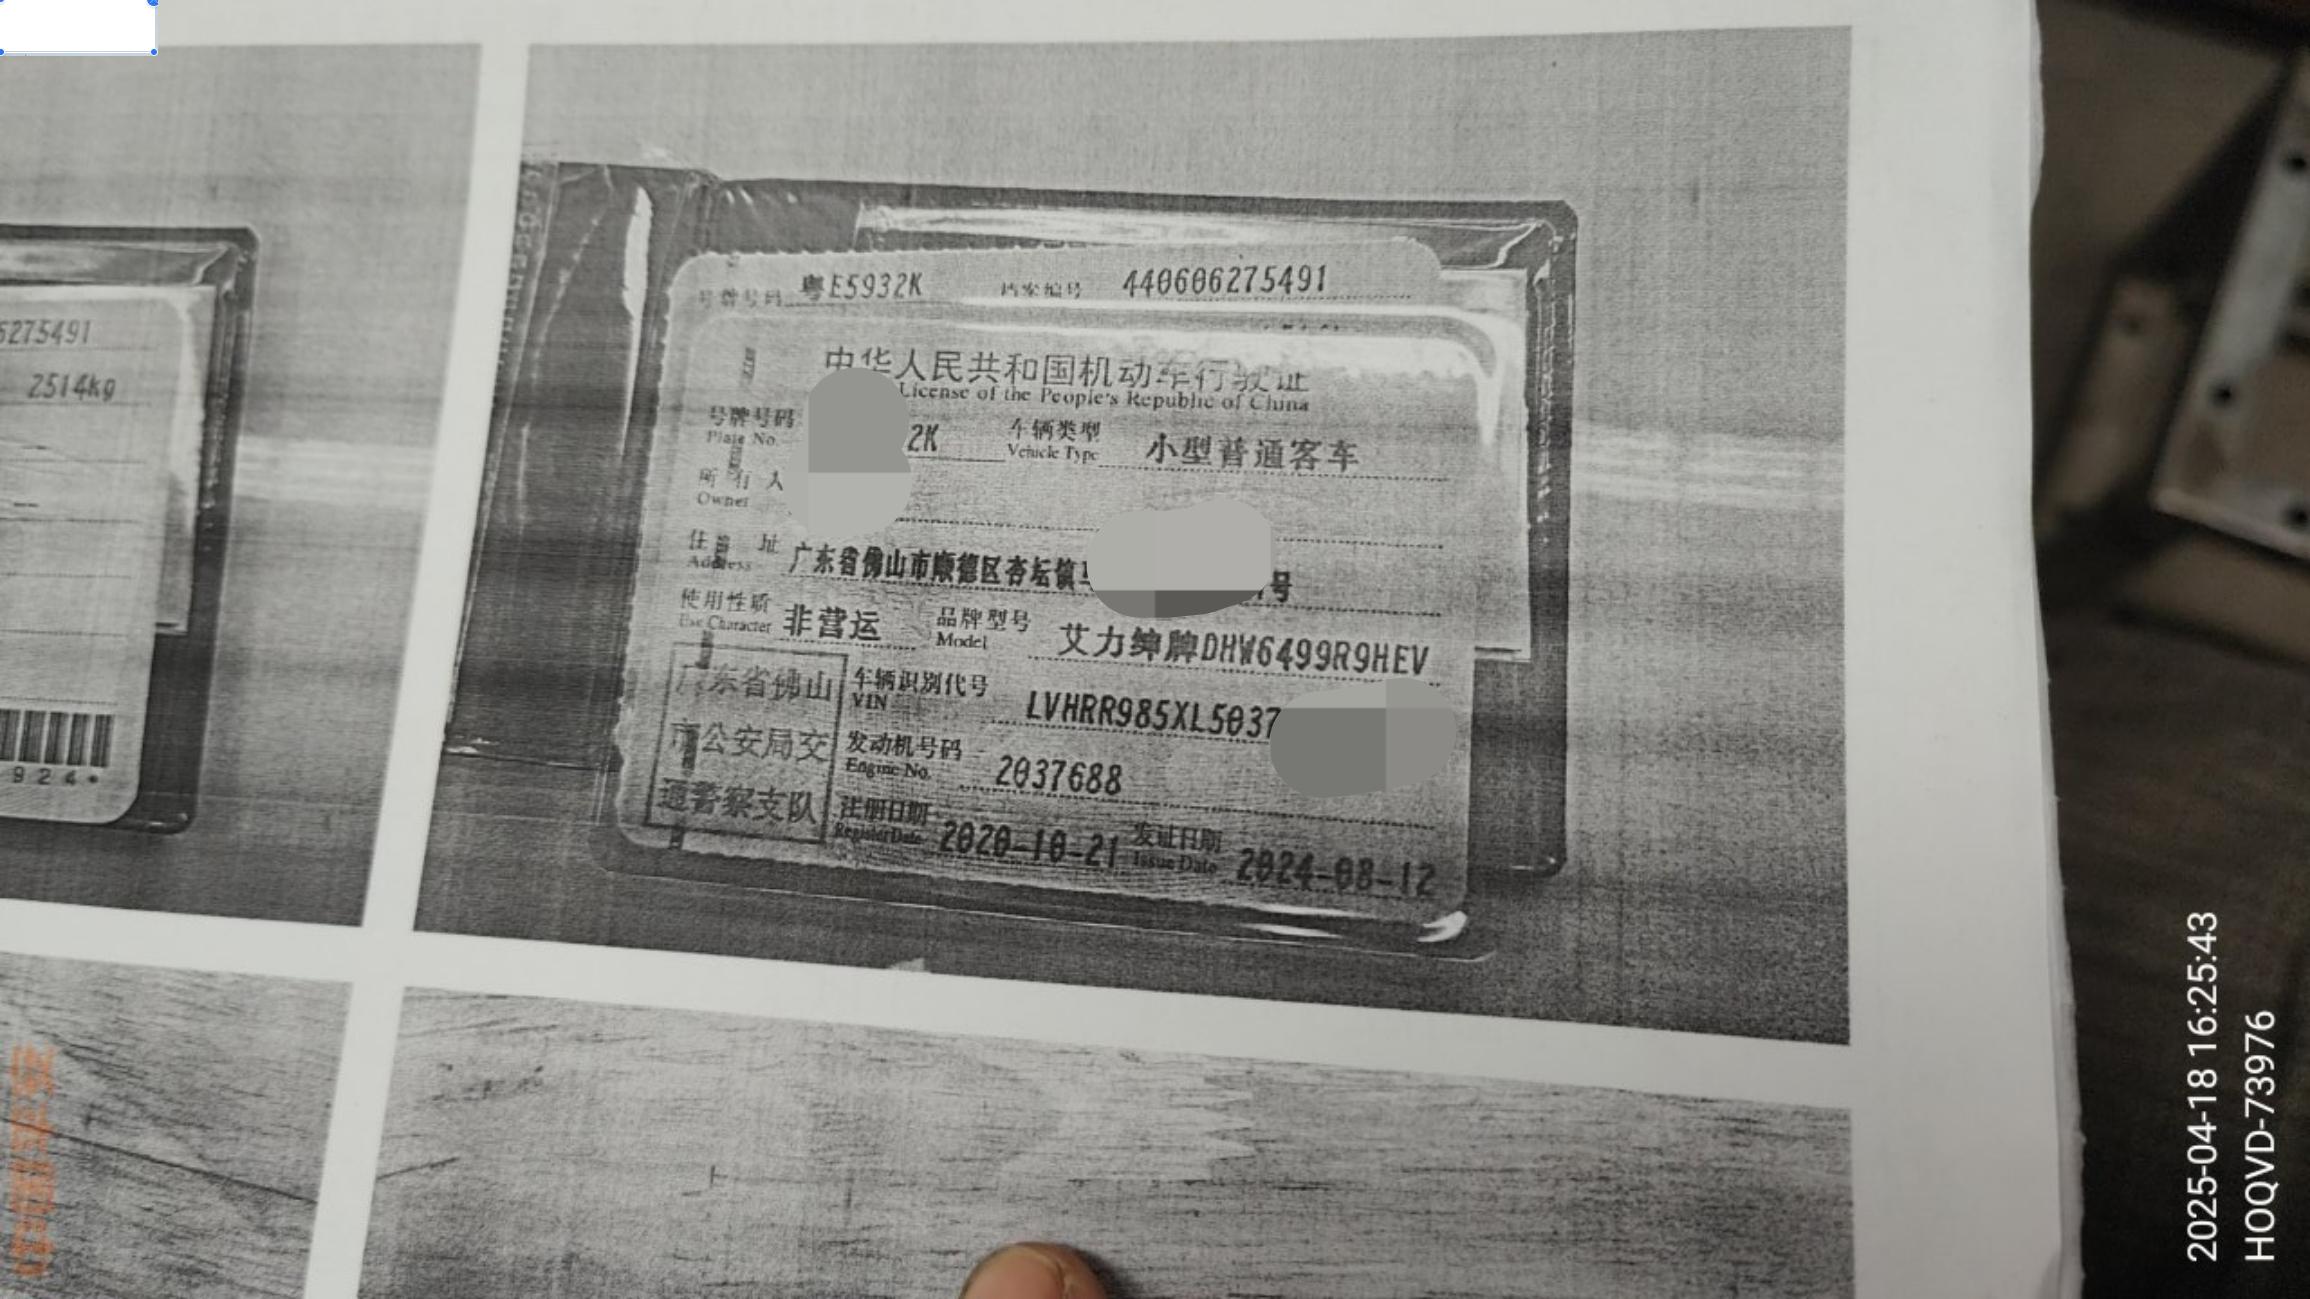 5275491
2514kg
924*
号牌号码 粤E5932K 档案编号 440606275491
中华人民共和国机动车行驶证
License of the People's Republic of China
号牌号码 2K 车辆类型 小型普通客车
Plate No. Vehicle Type
所有人
Owner
住址 广东省佛山市顺德区杏坛镇 号
Address
使用性质 非营运 品牌型号 艾力绅牌DHW6499R9HEV
Use Character Model
广东省佛山
市公安局交
通警察支队
车辆识别代号 LVHRR985XL5037
VIN
发动机号码 2037688
Engine No.
注册日期 2020-10-21 发证日期 2024-08-12
Register Date Issue Date
2025-04-18 16:25:43
HOQVD-73976